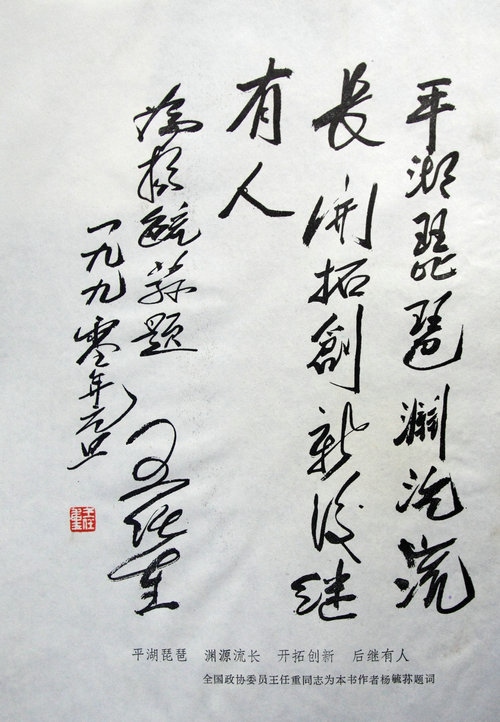 平湖琵琶淵源流
長開拓創新後继
有人
為楊毓荪题
一九九零年元旦
王任重
王任重
平湖琵琶 渊源流长 开拓创新 后继有人
全国政协委员王任重同志为本书作者杨毓荪题词